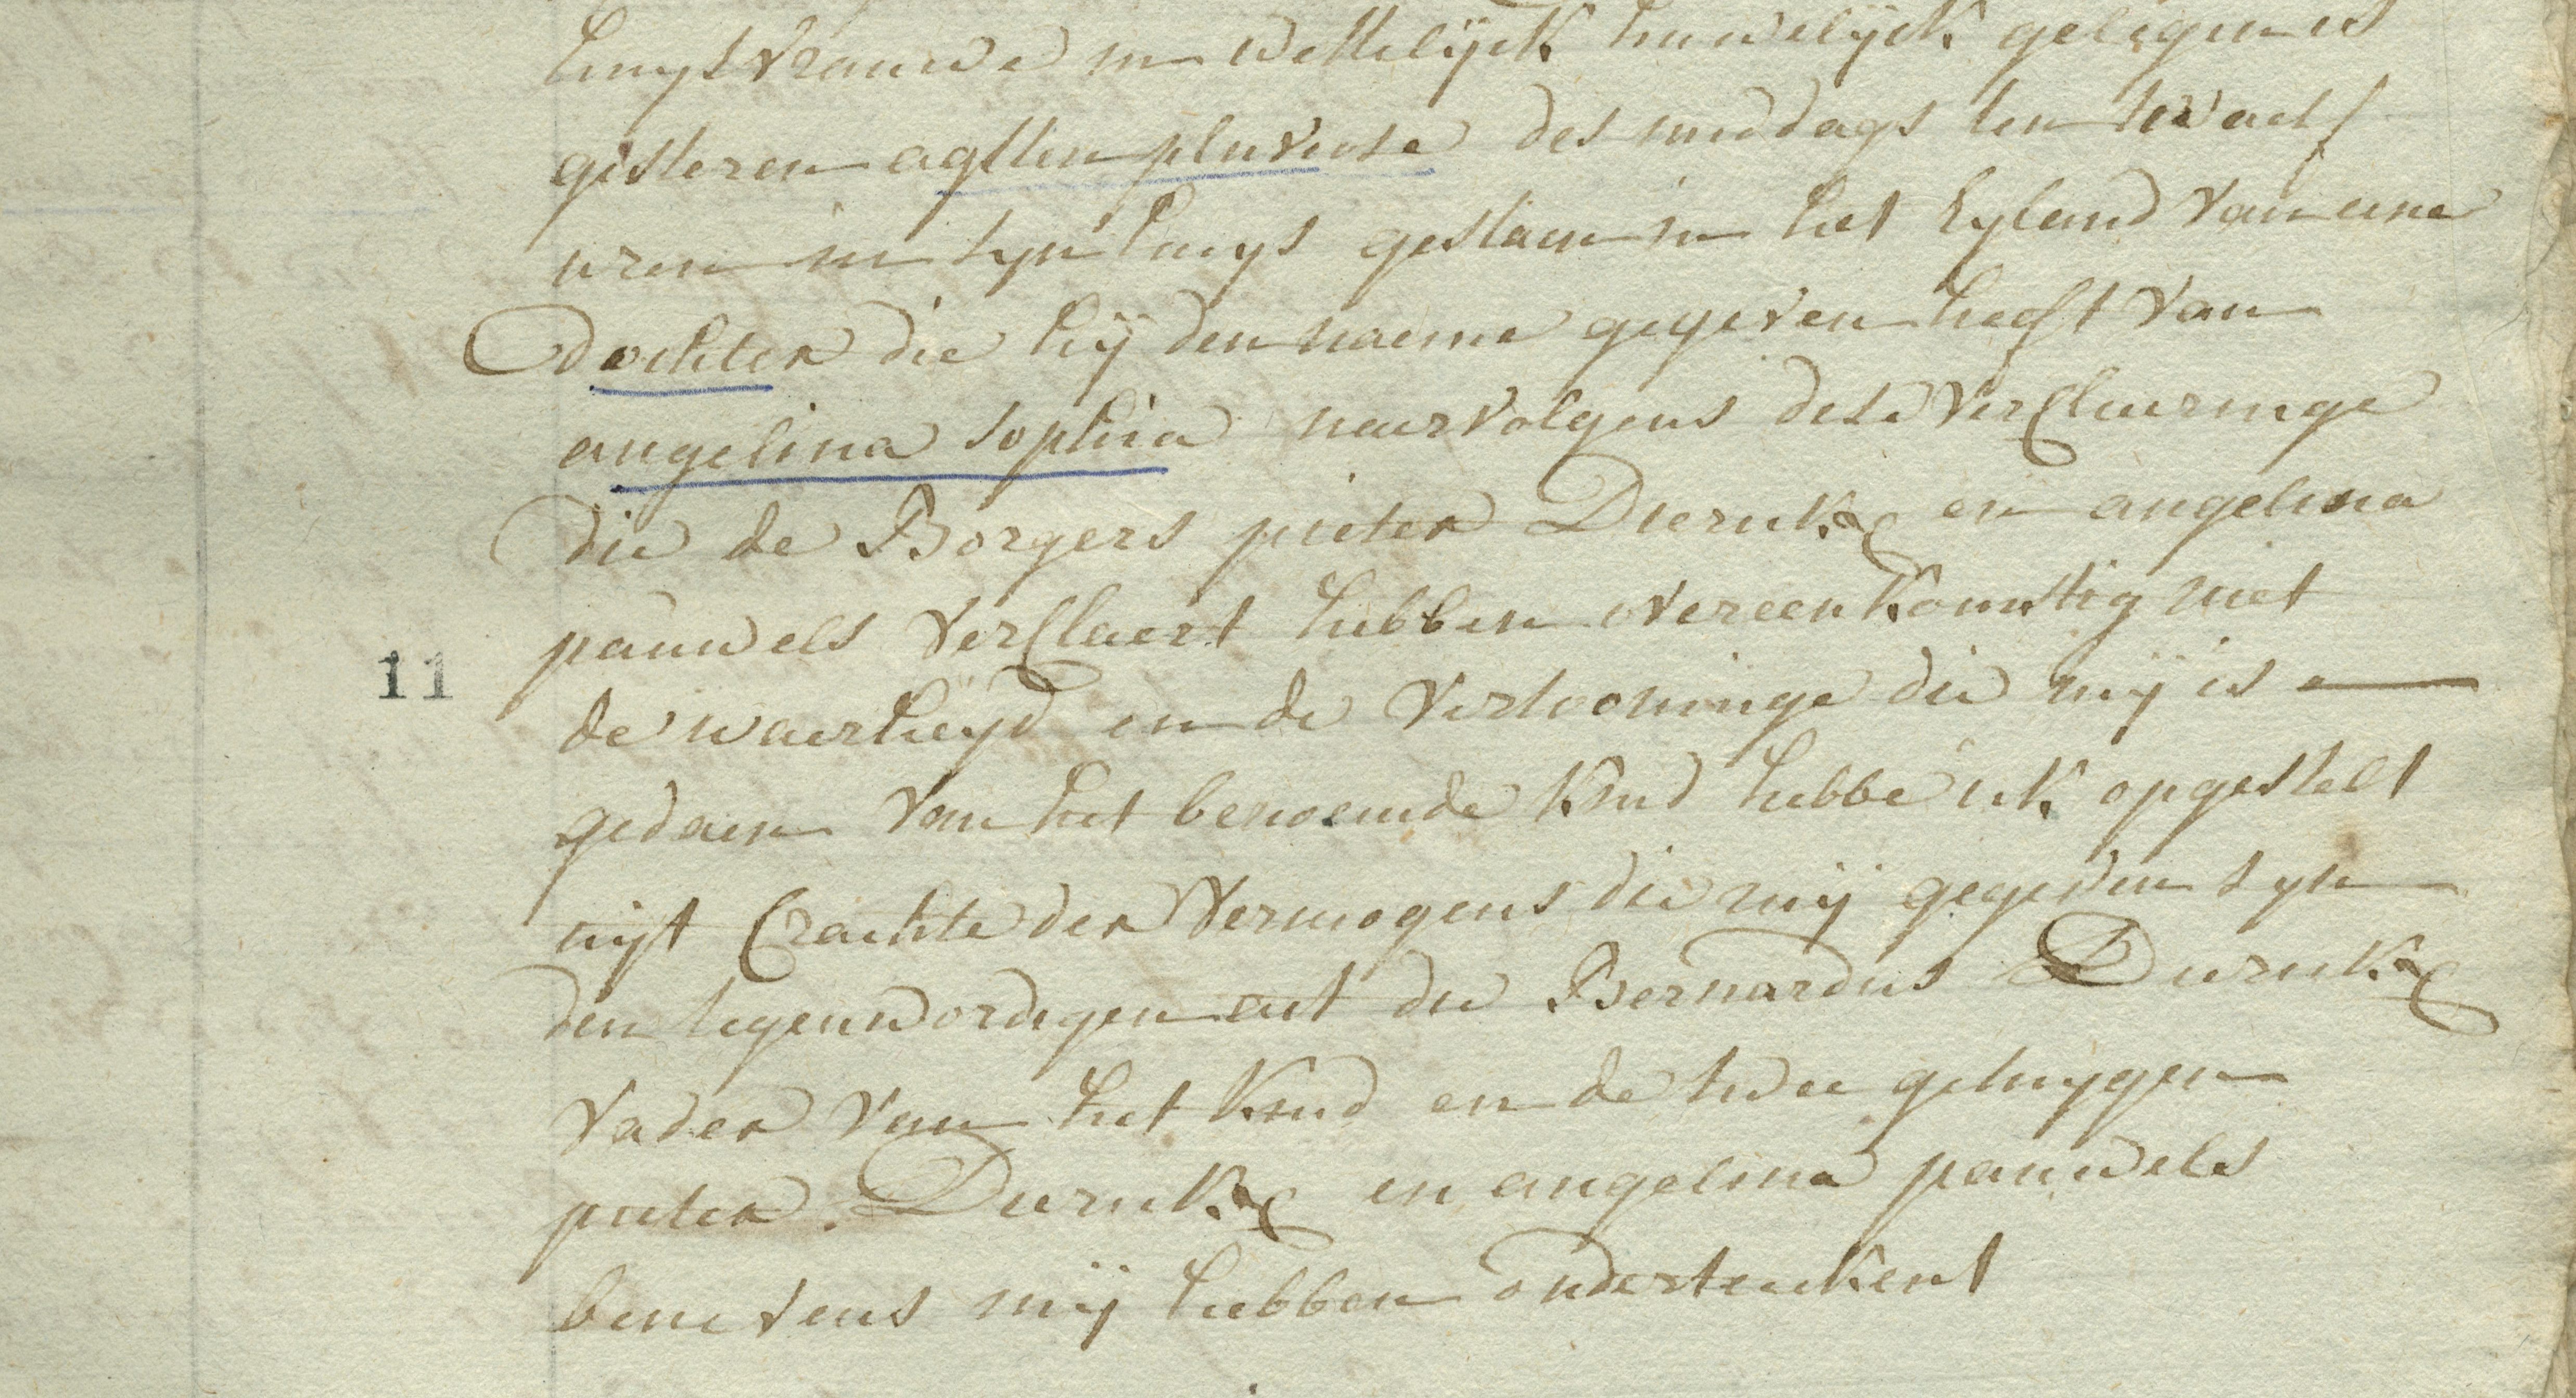 huysvrauwe in wettelijck huwelijck gelegen is
gisteren agsten pluviose des middags ten twaelf
uren in syn huys gestaen in het Eyland van eene
dochter die hij den naeme gegeven heeft van
angelina sophia naervolgens dese verclaeringe
die de Borgers pieter Dierickx en angelina
pauwels verclaert hebben overeenkomstig met
11
de waerheyd en de vertooninge die mij is
gedaen van het benoemde kind hebbe ick opgestelt
uijt Crachte der Vermogens die mij gegeven syn
den tegenwordigen act die Bernardus Dierickx
vader van het kind en de twee getuygen
pieter Dierickx en angelina pauwels
benevens mij hebben onderteekent